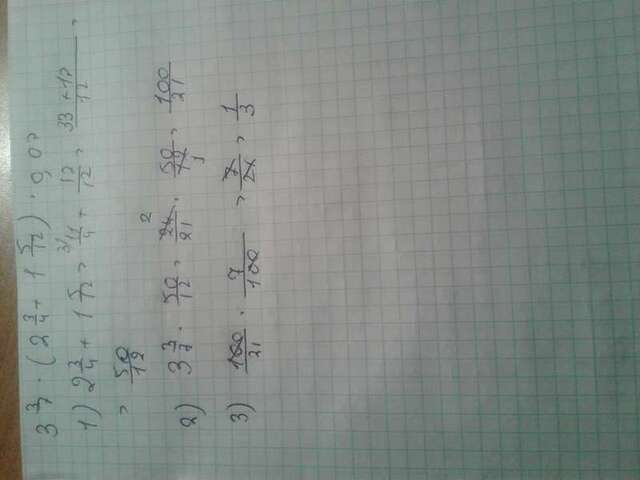 3 3/7 · (2 3/4 + 1 5/12) · 0,07
1) 2 3/4 + 1 5/12 = 11/4 + 17/12 = 33+17/12 =
= 50/12
2) 3 3/7 · 50/12 = 24/21 · 50/12 = 100/21
3) 100/21 · 7/100 = 7/21 = 1/3